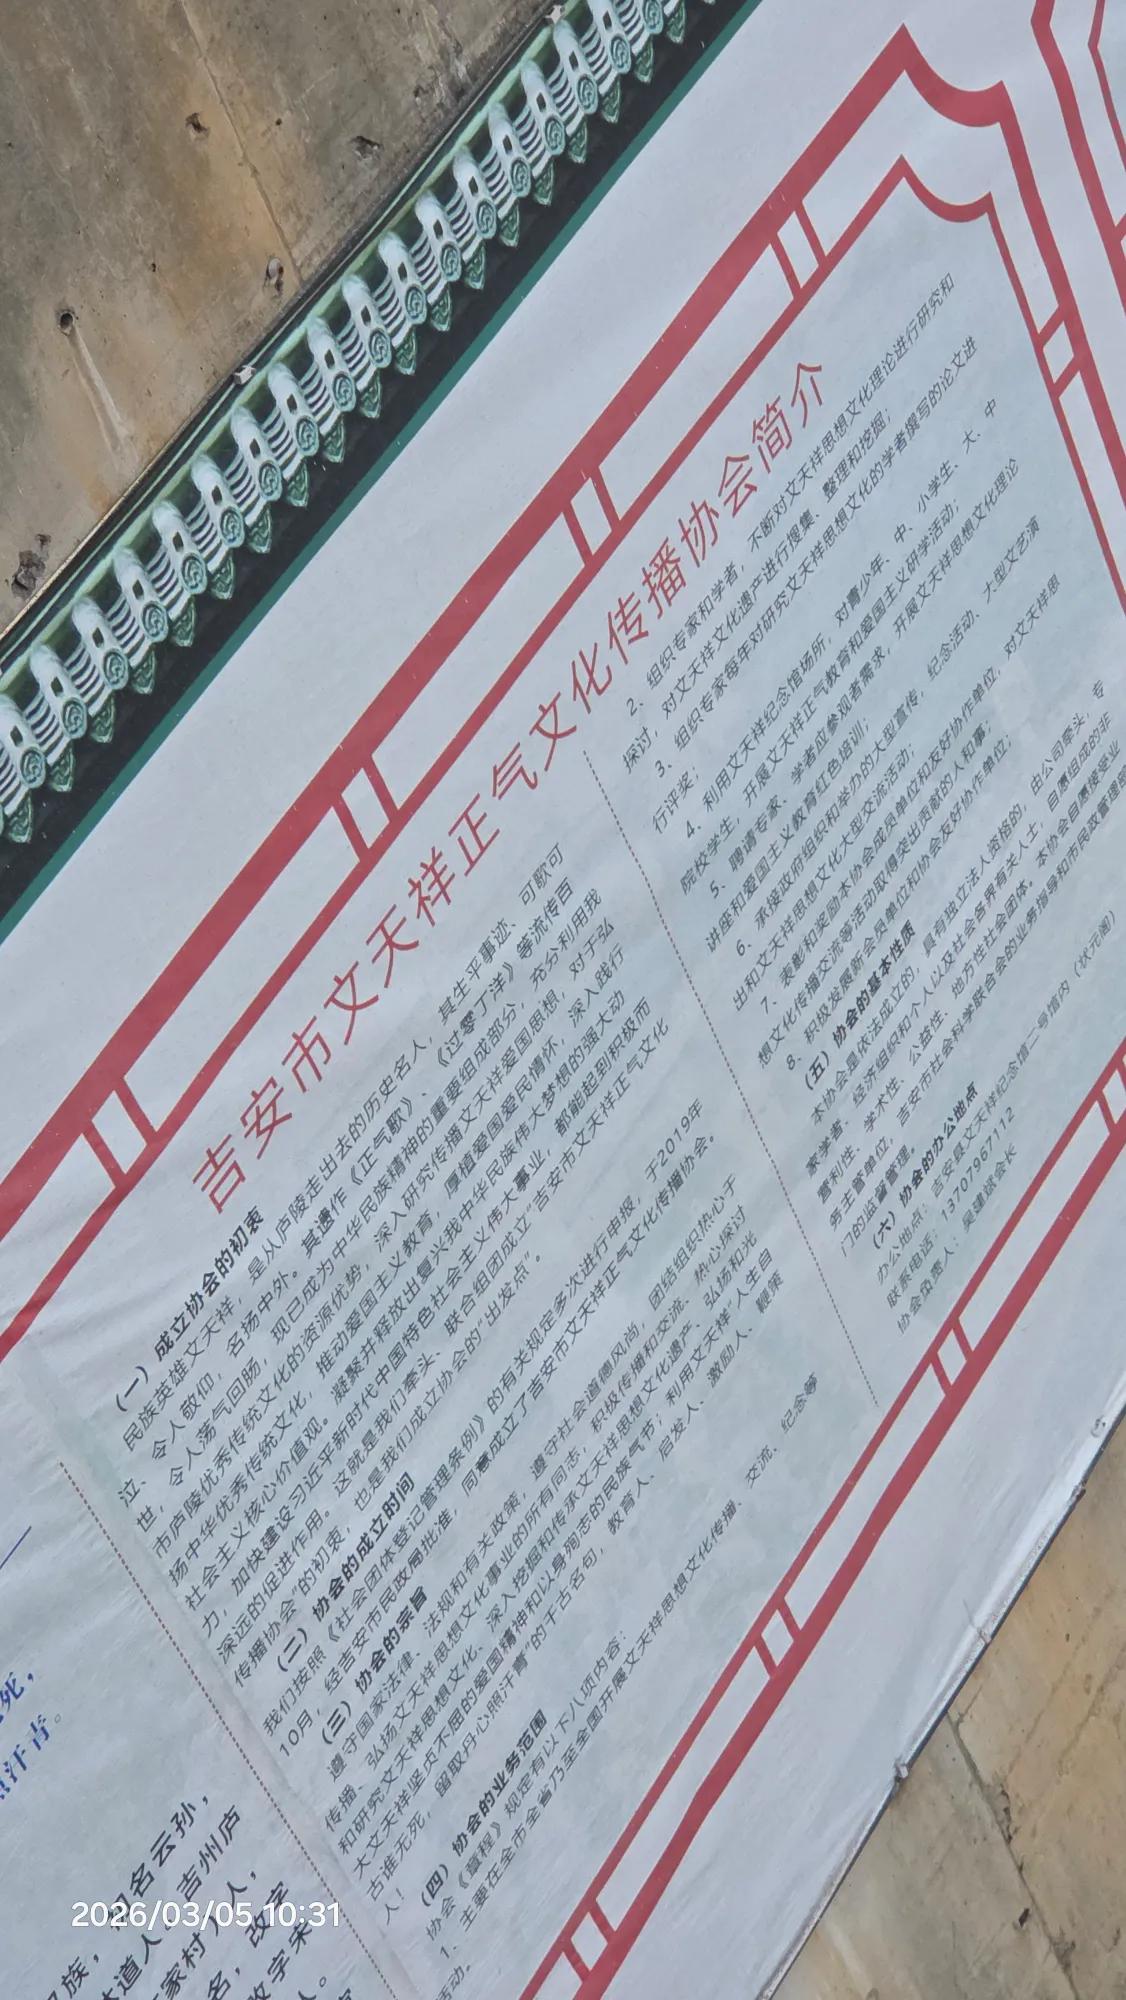 吉安市文天祥正气文化传播协会简介
(一) 成立协会的初衷
民族英雄文天祥,是从庐陵走出去的历史名人,其生平事迹、可歌可
泣、令人敬仰,名扬中外。其遗作《正气歌》、《过零丁洋》等流传百
世,令人荡气回肠,现已成为中华民族精神的重要组成部分,充分利用我
市庐陵优秀传统文化的资源优势,深入研究传播文天祥爱国思想,对于弘
扬中华优秀传统文化,推动爱国主义教育,厚植爱国爱民情怀,深入践行
社会主义核心价值观。凝聚并释放出复兴我中华民族伟大梦想的强大动
力,加快建设习近平新时代中国特色社会主义伟大事业,都能起到积极而
深远的促进作用。这就是我们牵头、联合组团成立“吉安市文天祥正气文化
传播协会”的初衷,也是我们成立协会的“出发点”。
(二) 协会的成立时间
我们按照《社会团体登记管理条例》的有关规定多次进行申报,于2019年
10月,经吉安市民政局批准,同意成立了吉安市文天祥正气文化传播协会。
(三) 协会的宗旨
遵守国家法律、法规和有关政策,遵守社会道德风尚,团结组织热心于
传播、弘扬文天祥思想文化事业的所有同志,积极传播和交流、热心探讨
和研究文天祥思想文化、深入挖掘和传承文天祥思想文化遗产、弘扬和光
大文天祥坚贞不屈的爱国精神和以身殉志的民族气节;利用文天祥“人生自
古谁无死,留取丹心照汗青”的千古名句,教育人、启发人、激励人、鞭策
人!
(四) 协会的业务范围
协会《章程》规定有以下八项内容:
1、主要在全市全省乃至全国开展文天祥思想文化传播、交流、纪念等
活动。
2、组织专家和学者,不断对文天祥思想文化理论进行研究和
探讨,对文天祥文化遗产进行搜集、整理和挖掘;
3、组织专家每年对研究文天祥思想文化的学者撰写的论文进
行评奖;
4、利用文天祥纪念馆场所,对青少年、中、小学生、大、中
院校学生,开展文天祥正气教育和爱国主义研学活动;
5、聘请专家、学者应参观者需求,开展文天祥思想文化理论
讲座和爱国主义教育红色培训;
6、承接政府组织和举办的大型宣传,纪念活动、大型文艺演
出和文天祥思想文化大型交流活动;
7、表彰和奖励本协会成员单位和友好协作单位,对文天祥思
想文化传播交流等活动取得突出贡献的人和事;
8、积极发展新会员单位和协会友好协作单位;
(五) 协会的基本性质
本协会是依法成立的,具有独立法人资格的,由公司牵头,专
家学者、经济组织和个人以及社会各界有关人士,自愿组成的非
营利性、学术性、公益性、地方性社会团体。本协会自愿接受业
务主管单位,吉安市社会科学联合会的业务指导和市民政管理部
门的监督管理。
(六) 协会的办公地点
办公地点:吉安县文天祥纪念馆二号馆内(状元阁)
联系电话:13707967112
协会负责人:吴建斌会长
死,
汗青。
初名云孙,
吉州庐
家村)人,
名,改字
2026/03/05 10:31